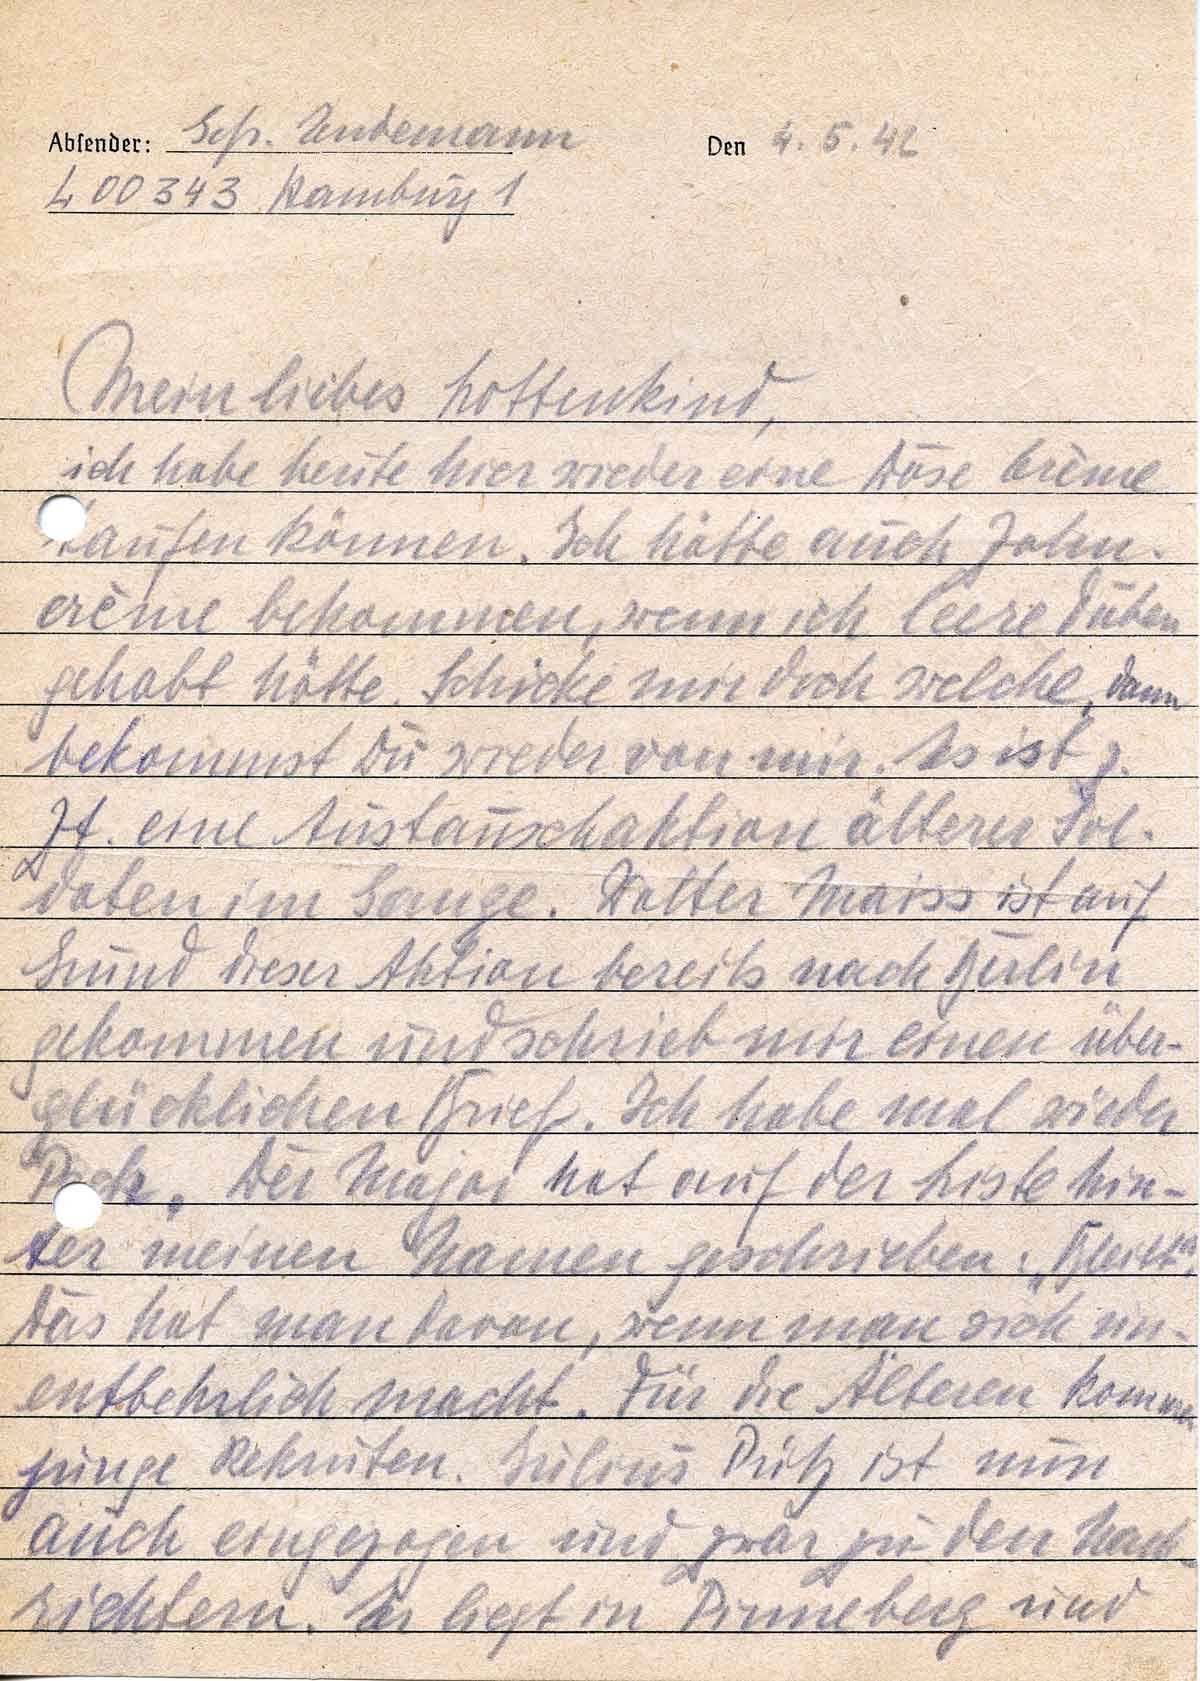 Absender: Gefr. Endemann Den 4.5.42
L 00343 Hamburg 1
Mein liebes Lottenkind,
ich habe heute hier wieder eine Dose Crème
kaufen können. Ich hätte auch Zahn-
crème bekommen, wenn ich leere Tuben
gehabt hätte. Schicke mir doch welche, dann
bekommst Du wieder von mir. Es ist z.
Zt. eine Austauschaktion älterer Sol-
daten im Gange. Walter Maiss ist auf
Grund dieser Aktion bereits nach Berlin
gekommen und schrieb mir einen über-
glücklichen Brief. Ich habe mal wieder
Pech. Der Major hat auf der Liste hin-
ter meinen Namen geschrieben: „Bleibt“.
Das hat man davon, wenn man sich un-
entbehrlich macht. Für die Älteren kommen
junge Rekruten. Julius Pütz ist nun
auch eingezogen und zwar zu den Nach-
richtern. Er liegt in Pinneberg und